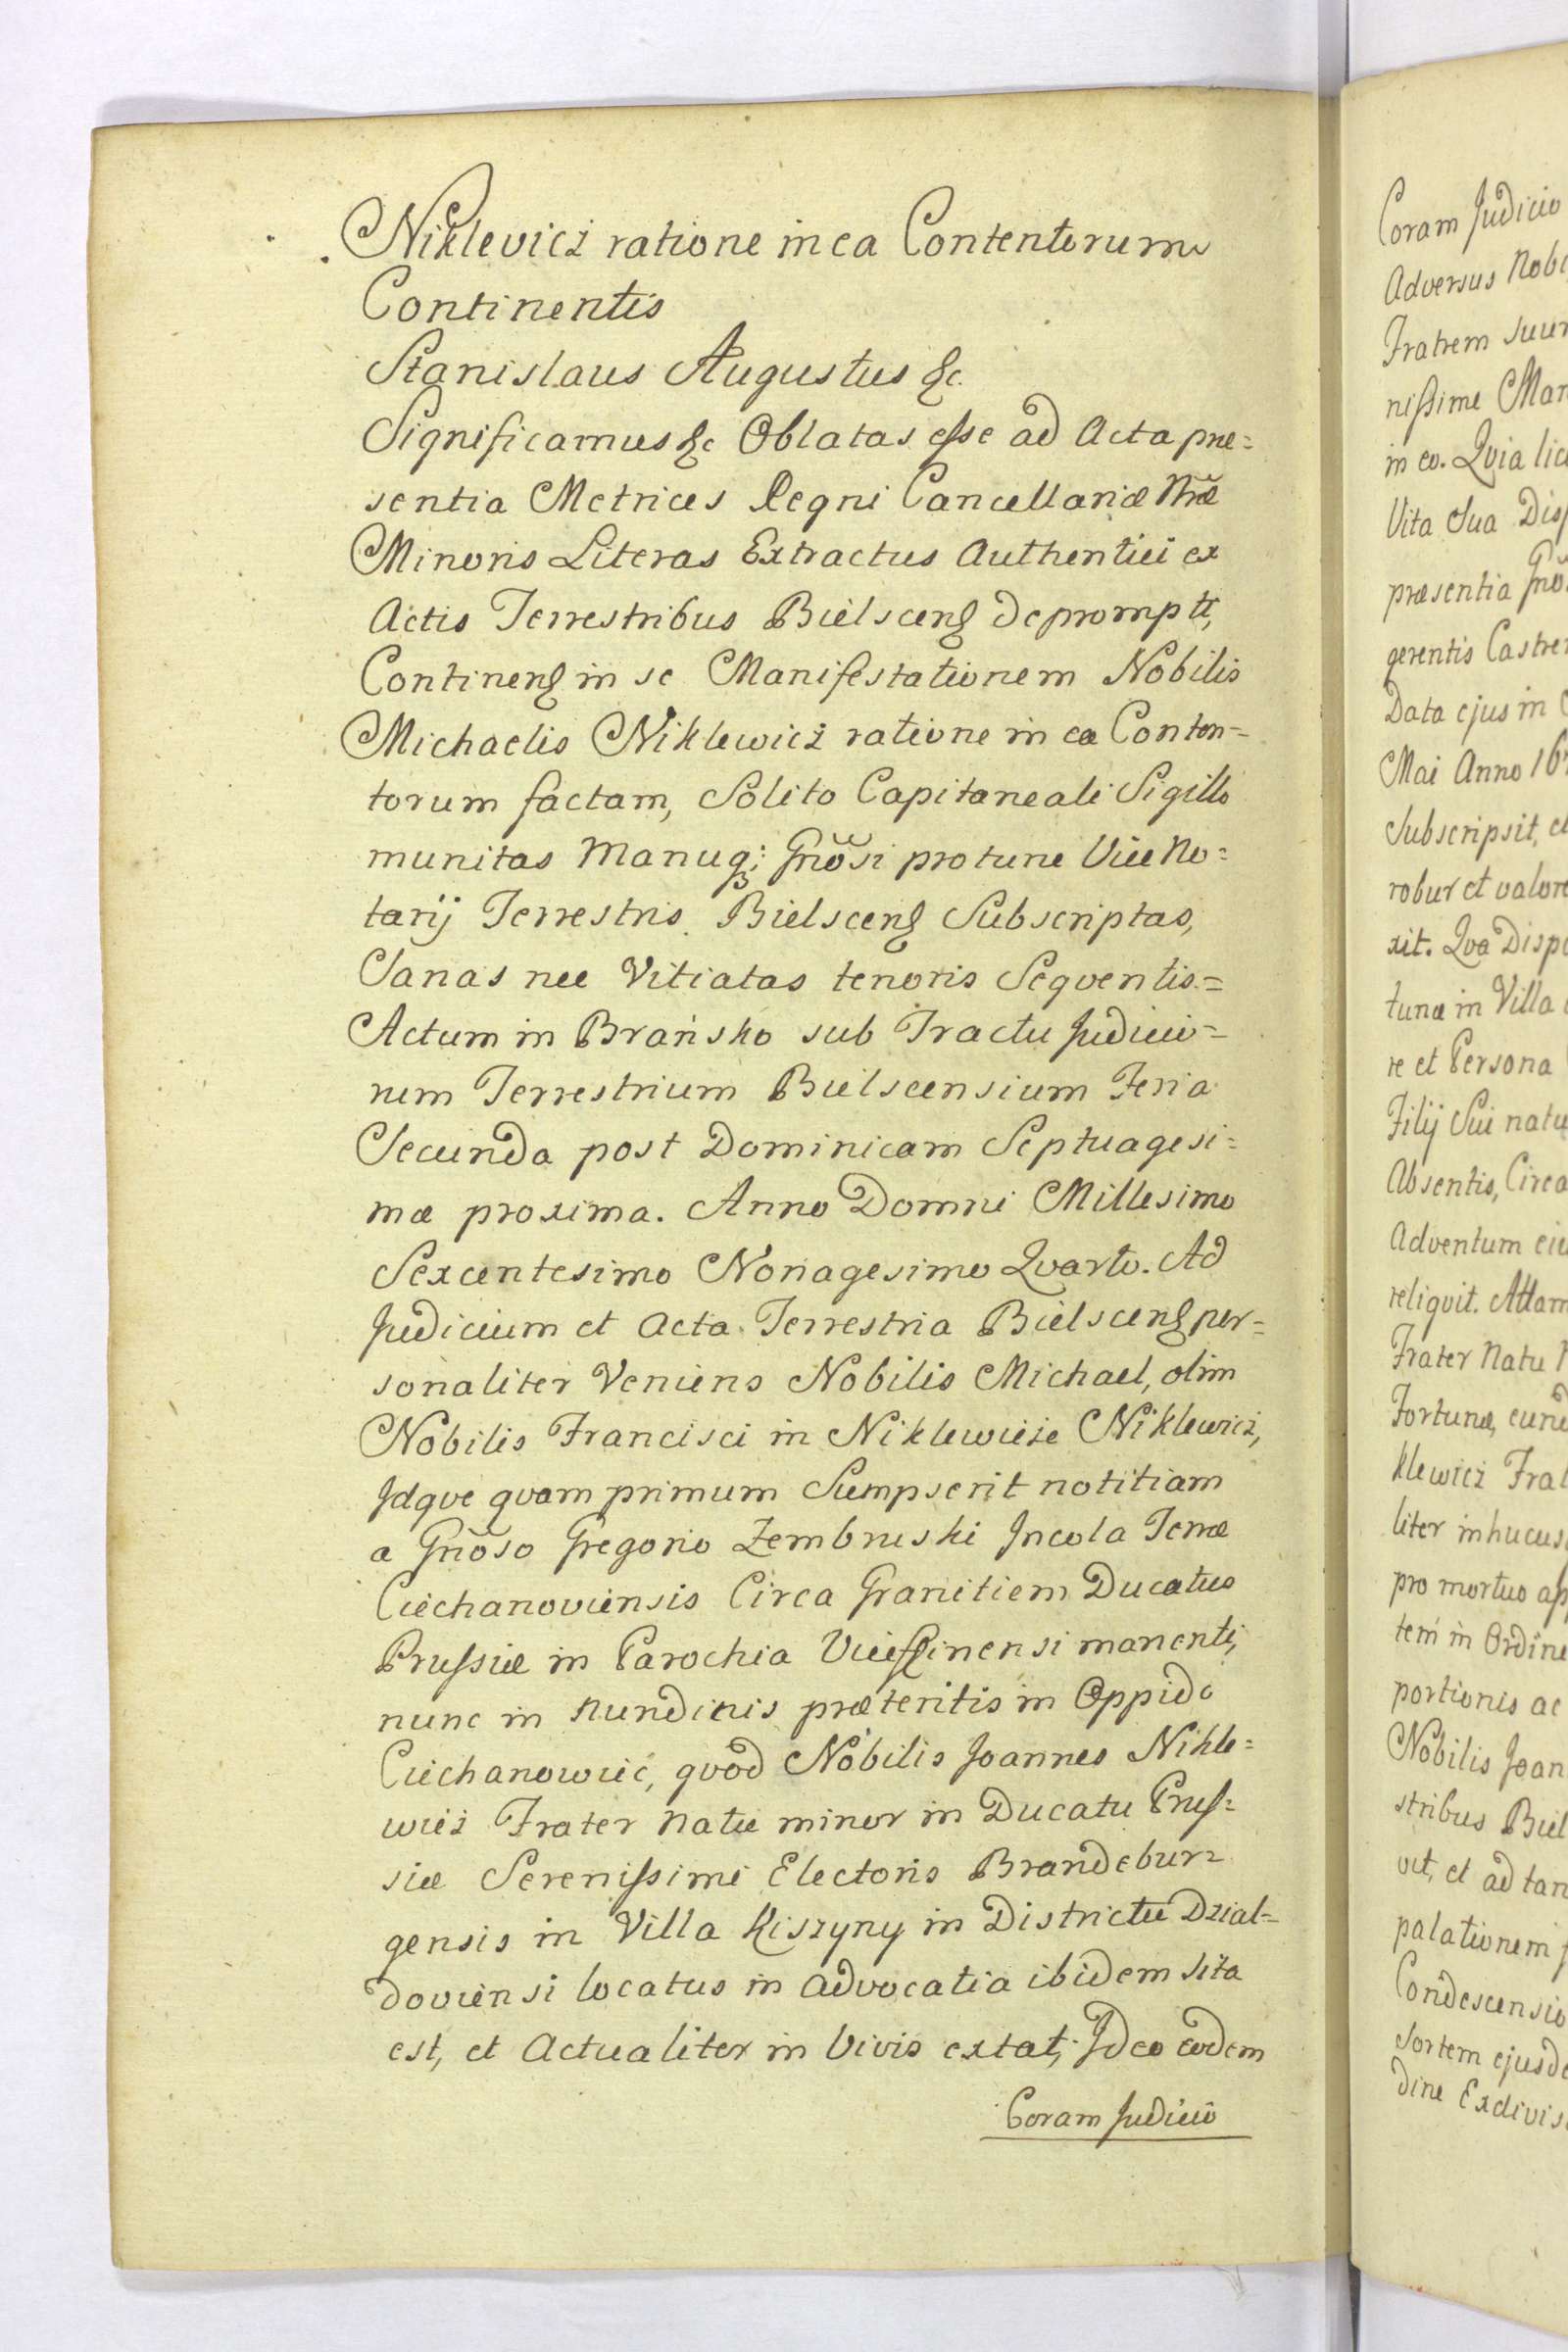 Niklevicz ratione in ea Contentorum
Continentis
Stanislaus Augustus &c.
Significamus &c Oblatas esse ad Acta præ=
sentia Metrices Regni Cancellariæ Nræ
Minoris Literas Extractus Authentici ex
Actis Terrestribus Bielscens deprompti,
Continens in se Manifestationem Nobilis
Michaelis Niklewicz ratione in ea Conten=
torum factam, Solito Capitaneali Sigillo
munitas Manuq; Gnosi protunc Vice No=
tarij Terrestris Bielscens Subscriptas,
Sanas nec Vitiatas tenoris Seqventis=
Actum in Brańsko sub Tractu Judicio=
rum Terrestrium Bielscensium Feria
Secunda post Dominicam Septuagesi=
mæ proxima. Anno Domni Millesimo
Sexcentesimo Nonagesimo Qvarto. Ad
Judicium et Acta Terrestria Bielscens per=
sonaliter Veniens Nobilis Michael, olim
Nobilis Francisci in Niklewicze Niklewicz,
Jdqve qvam primum Sumpserit notitiam
a Gnoso Gregorio Zembrzuski Jncola Terræ
Ciechanoviensis Circa Granitiem Ducatus
Prussiæ in Parochia manenti,
nunc in nundinis præteritis in Oppido
Ciechanowiec, qvod Nobilis Joannes Nikle=
wicz Frater Natu minor in Ducatu Prus=
siæ Serenissimi Electoris Brandebur=
gensis in Villa Kiszyny in Districtu Dzial=
doviensi locatus in Advocatia ibidem sita
est, et Actualiter in Vivis extat, Jdeo eodem
Coram Judicio
Coram Judicio
Adversus Nobi
Fratrem Suum
nissime Man
in eo. Qvia lic
Vita Sua Disp
præsentia Gno
gerentis Castren
Data ejus in
Mai Anno 16
Subscripsit, et
robur et valore
xit. Qva Dispo
tunæ in Villa
re et Persona
Filij Sui natu
Absentis, Circa
Adventum eiu
reliqvit. Attam
Frater Natu
Fortunæ, eund
klewicz Frat
liter in hucus
pro mortuo
tem in Ordine
portionis ac
Nobilis Joan
stribus Biel
vit, et ad tan
palationem
Condescensio
Sortem ejusde
dine Exdivis